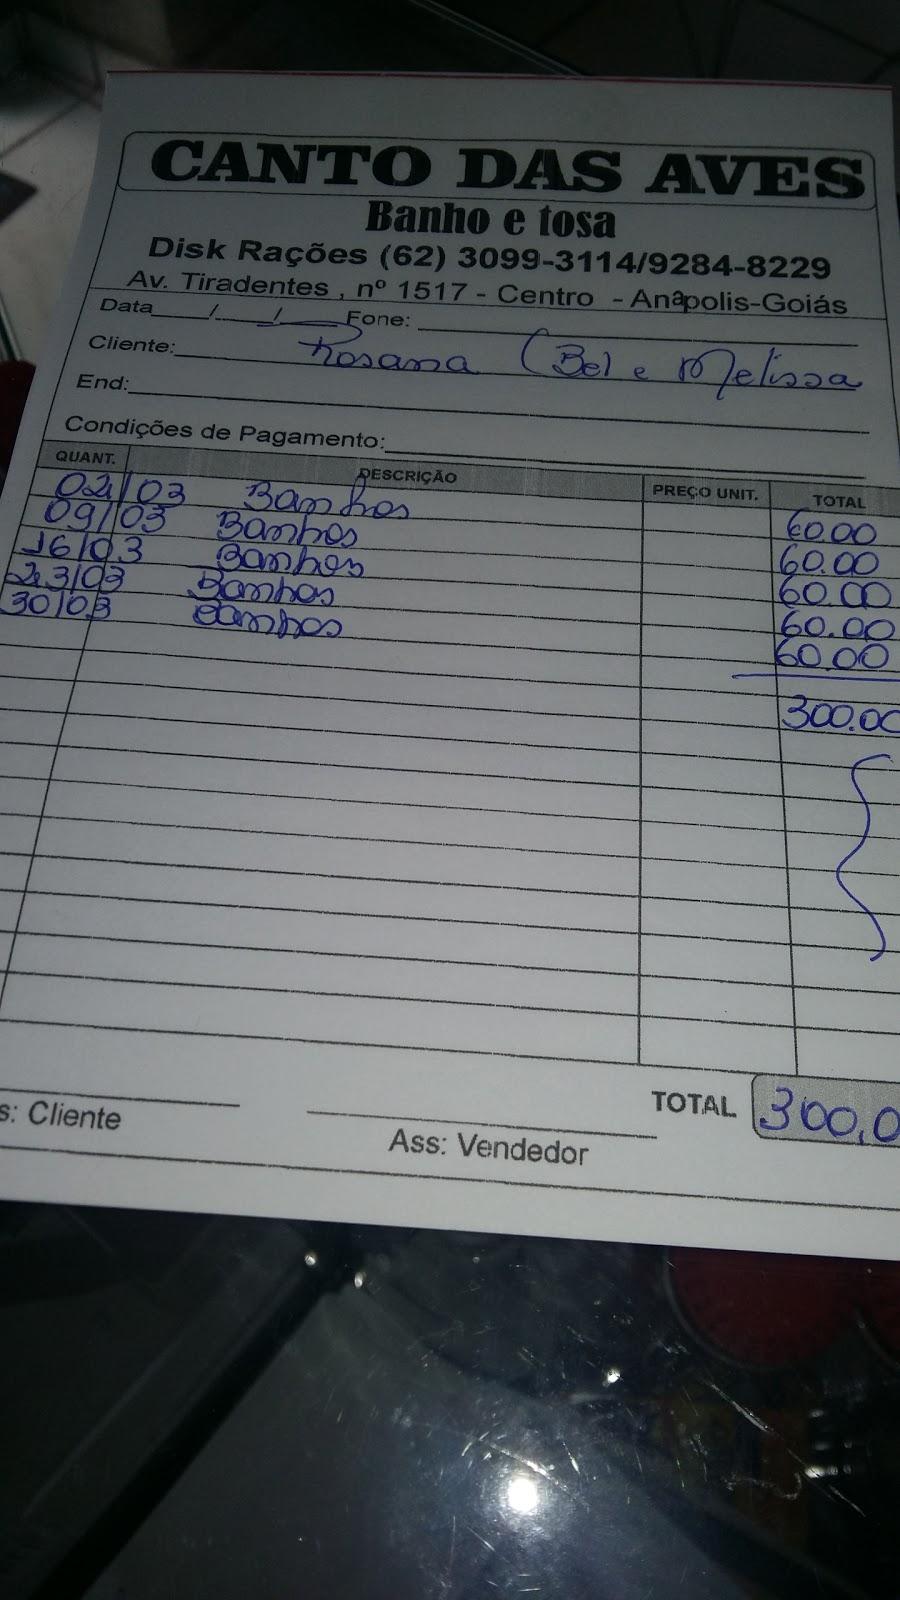 CANTO DAS AVES
Banho e tosa
Disk Rações (62) 3099-3114/9284-8229
Av. Tiradentes , nº 1517 - Centro - Anápolis-Goiás
Data___/___/___ Fone:
Cliente: Rosana (Bel e Melissa
End:
Condições de Pagamento:
QUANT. DESCRIÇÃO PREÇO UNIT. TOTAL
02/03 Banhos 60.00
09/03 Banhos 60.00
16/03 Banhos 60.00
23/03 Banhos 60.00
30/03 Banhos 60.00
300.00
TOTAL 300,0
s: Cliente
Ass: Vendedor